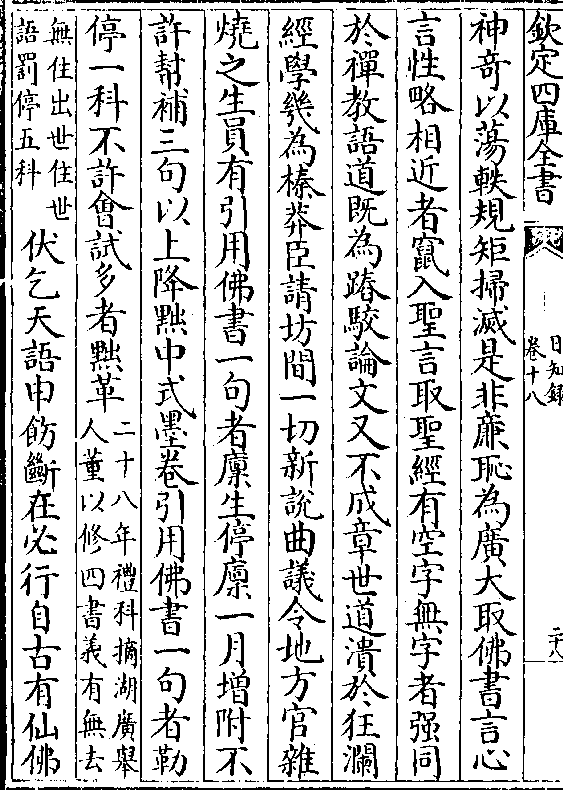 欽定四庫全書
日知錄
卷十八
二十八
神奇以蕩軼規矩掃滅是非廉恥為廣大取佛書言心
言性略相近者竄入聖言取聖經有空字無字者强同
於禪教語道既為踳駁論文又不成章世道潰於狂瀾
經學幾為榛莽臣請坊間一切新說曲議令地方官雜
燒之生員有引用佛書一句者廩生停廩一月增附不
許幫補三句以上降黜中式墨卷引用佛書一句者勒
停一科不許會試多者黜革二十八年禮科摘湖廣舉
人董以修四書義有無去
無住出世住世
語罰停五科
伏乞天語申飭斷在必行自古有仙佛